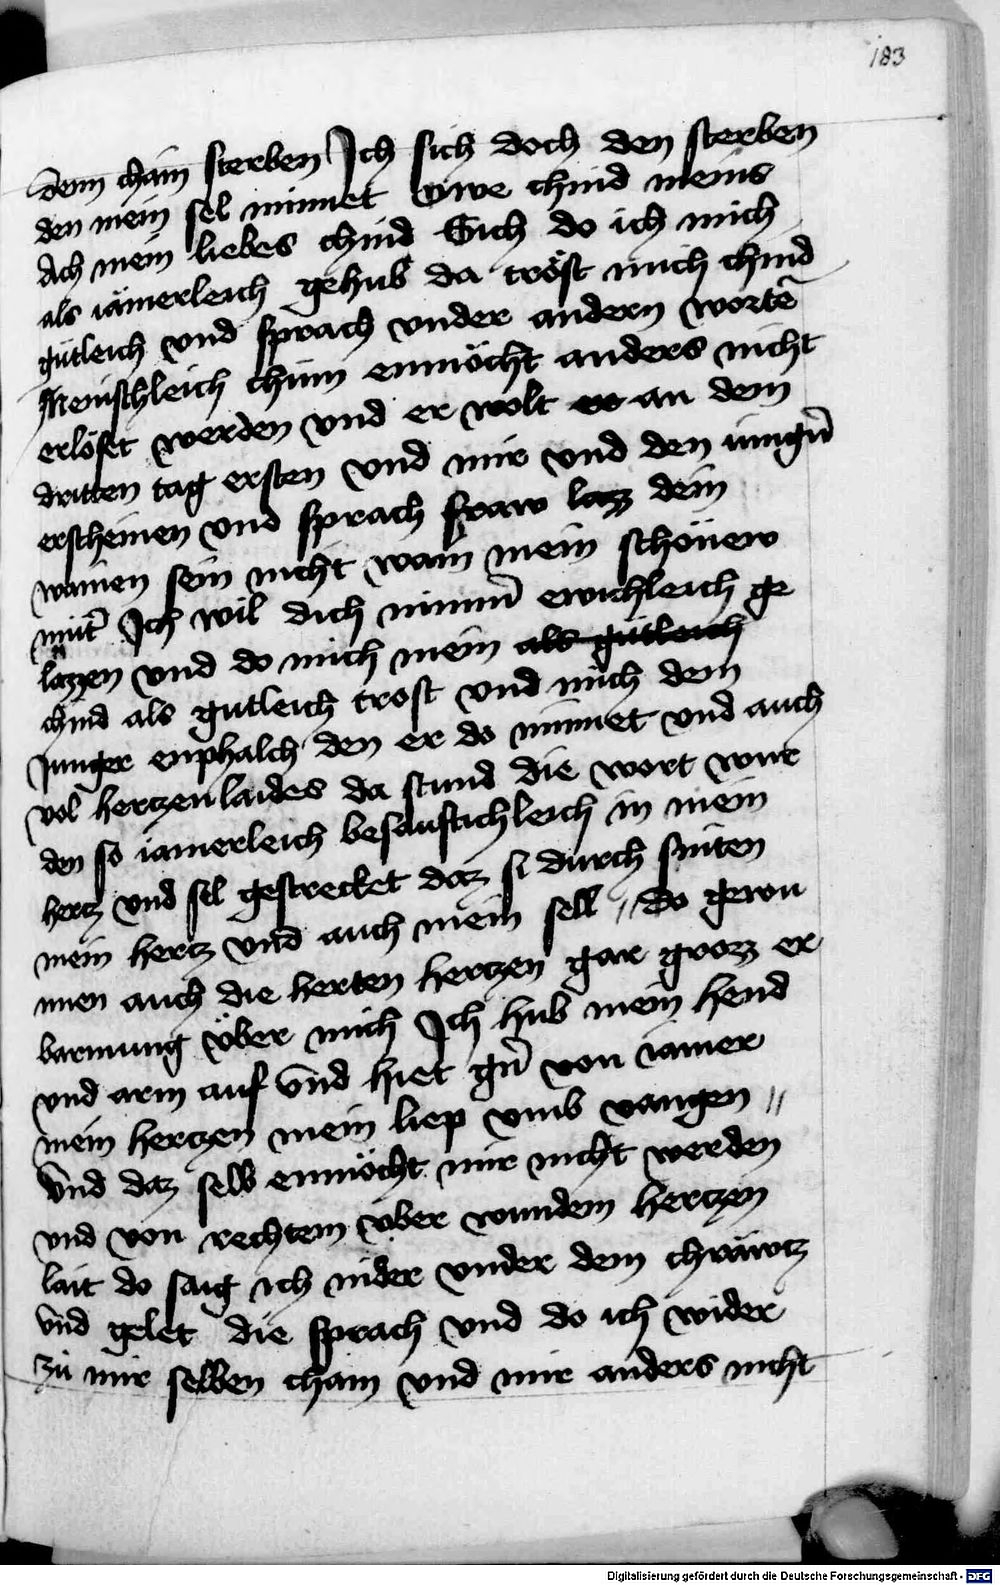 183
denn cham sterben Ich sich doch den sterben
den mein sel minnet Owe chind meins
Ach mein liebes chind Sich do ich mich
als iämerleich gehub da tröst mich chind
gütleich vnd sprach vnder andern wortē
Menschleich chün enmöcht anders nicht
erlöset werden vnd er wolt er an dem
dritten tag ersten vnd mir vnd den iungñ
erscheinen vnd sprach fraw lazz dein
wainen sein nicht wain mein schönew
mut̃ Ich wil dich nimm̃ ewichleich ge
lazzen vnd do mich mein als gütleich
chind als gutleich trost vnd mich dem
Junger enphalch den er do minnet vnd auch
vol hertzenlaides da stund die wort wur
den so iamerleich besauftichleich in mein
hertz vnd sel gestrecket daz si durch sniten
mein hertz vnd auch mein sell // do gewn
nnen auch die herten hertzen gar grozz er
barmung über mich Ich hub mein hend
vnd arm auf vnd hiet gñ von iamer
mein hertzen mein liep vmb vangen //
vnd daz selb enmöcht mir nicht werden
vnd von rechtem vber wundem hertzen
lait do saig ich nider vnder dem chräwtz
vnd gelet die sprach vnd do ich wider
zü mir selben cham vnd mir anders nicht
Digitalisierung gefördert durch die Deutsche Forschungsgemeinschaft - DFG